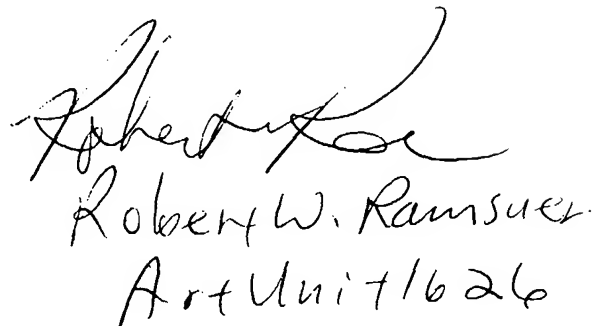 Robert
Robert W. Ramsuer.
Art Unit 1626